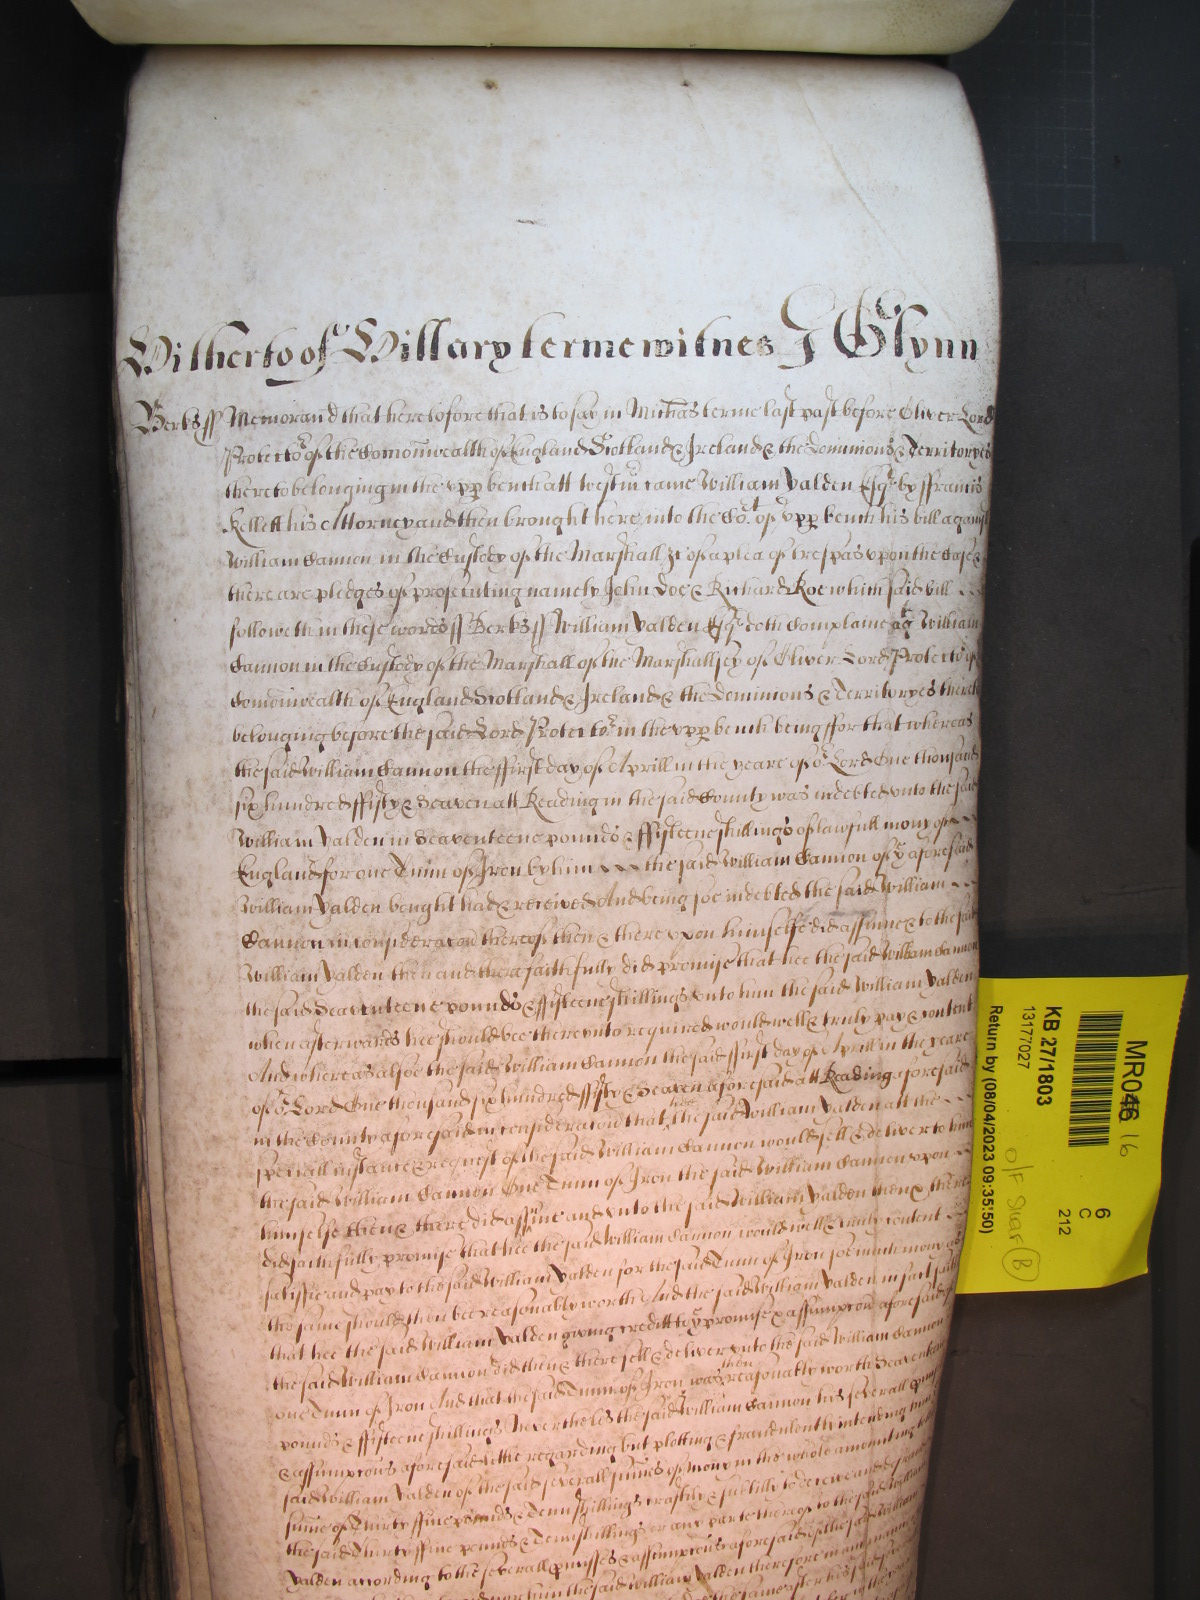 Hitherto of Hillary terme witnes J Glynn
Berks ss Memorand that heretofore that is to say in Michas terme last past before Oliver Lord
Protector of the Comonwealth of England Scotland & Ireland & the dominions & Territoryes
thereto belonging in the upp bench att Westm came William Yalden Esqr by Francis
Kellett his Attorney and then brought here into the Cot of upp bench his bill against
William Cannon in the Custody of the Marshall &c of a plea of trespas upon the Case &
there are pledges of prosecuting namely John Doe & Richard Roe which said bill
followeth in these words ss Berks ss William Yalden Esqr doth Complaine agt William
Cannon in the Custody of the Marshall of the Marshallsey of Oliver Lord Protector of
Comonwealth of England Scotland & Ireland & the Dominions & Territoryes thereto
belonging before the said Lord Protector in the upp bench being ffor that whereas
the said William Cannon the ffirst day of Aprill in the yeare of or Lord One thousand
six hundred ffifty & Seaven att Reading in the said County was indebted unto the said
William Yalden in Seaventeene pounds & ffifteene shillings of lawfull mony of
England for one Tunn of Iron by him the said William Cannon of ye aforesaid
William Yalden bought had & received And being soe indebted the said William
Cannon in consideracon thereof then & there upon himselfe did assume & to the said
William Yalden then and there faithfully did promise that hee the said William Cannon
the said Seaventeene pounds & ffifteene shillings unto him the said William Yalden
when afterwards hee should bee thereunto required would well & truly pay & content
And whereas alsoe the said William Cannon the said ffirst day of Aprill in the yeare
of or Lord One thousand six hundred ffifty & Seaven aforesaid att Reading aforesaid
in the County aforesaid in consideracon that hee the said William Yalden att the
speciall instance & request of the said William Cannon would sell & deliver to him
the said William Cannon One Tunn of Iron the said William Cannon upon
himselfe then & there did assume and unto the said William Yalden then & there
did faithfully promise that hee the said William Cannon would well & truly content
satisfie and pay to the said William Yalden for the said Tunn of Iron soe much mony as
the same should then bee reasonably worth And the said William Yalden in fact saith
that hee the said William Yalden giving creditt to ye promise & assumpcon aforesaid of
the said William Cannon did then & there sell & deliver unto the said William Cannon
one Tunn of Iron And that the said Tunn of Iron was then reasonably worth Seaventeene
pounds & ffifteene shillings Neverthelesse the said William Cannon his severall pmises
& assumpcons aforesaid little regarding but plotting & fraudulently intending the
said William Yalden of the said severall sumes of mony in the whole amounting to the
sume of Thirty ffive pounds & Tenn shillings craftily & subtilly to deceive and defraud
the said Thirty ffive pounds & Tenn shillings or any parte thereof to the said William
Yalden according to the severall pmisses & assumpcons aforesaid of the said William
him the said William Yalden therefore in manner
MR046 16
6
C
212
KB 27/1803
13177027
Return by (08/04/2023 09:35:50)
O/F Shelf B